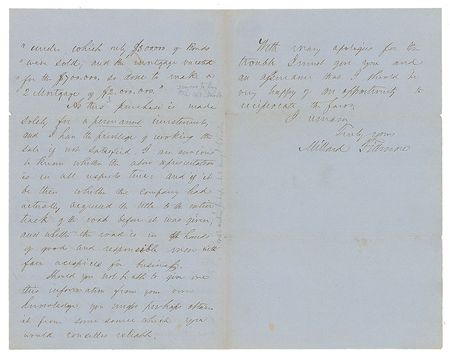 " under which only $300000 of Bonds
" were sold, and the mortgage
for the $700.000. so done to make a
2 Mortgage of $2.000.000."
As this purchase is made
solely for a permanent investment,
and I have the privilege of revoking the
sale if not satisfied, I am anxious
to know whether the above representation
is in all respects true: and if it
be then whether the company had
actually acquired the title to the entire
track of the road before it was given,
and whether the road is in the hands
of good and responsible men with
fair auspices for business.
Should you not be able to give me
this information from your own
knowledge you might perhaps obtain
it from some source which you
would consider reliable.
With many apologies for the
trouble I must give you and
an assurance that I should be
very happy of an opportunity to
reciprocate the favor,
I remain
Truly yours
Millard Fillmore